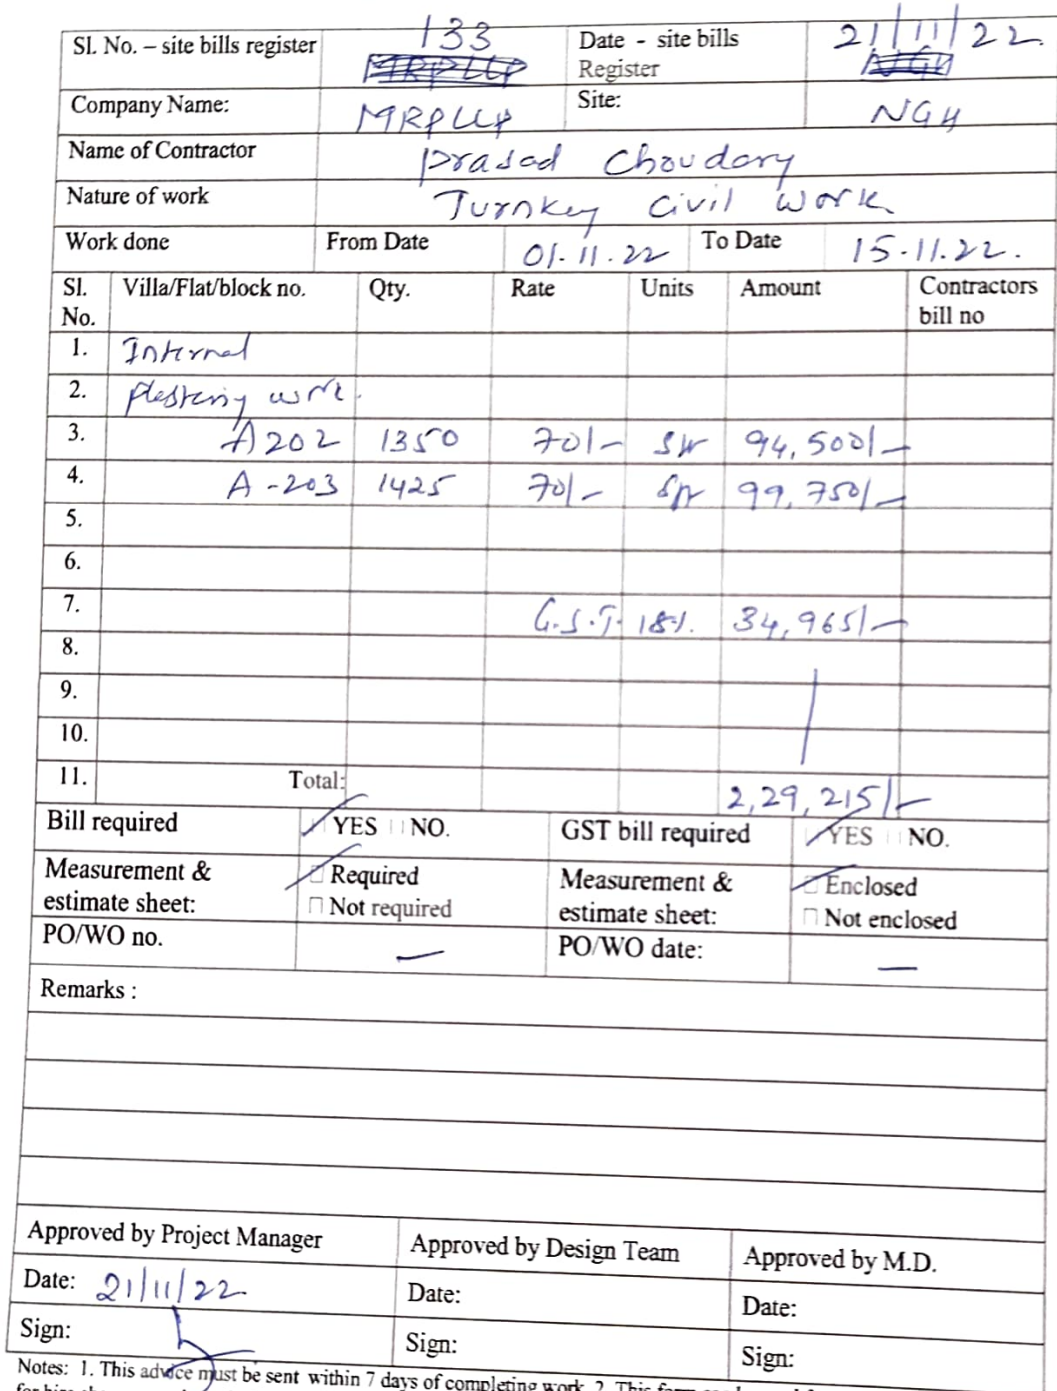 Sl. No. – site bills register 133 Date - site bills Register 21/11/22.
Company Name: MRPLLP Site: NGH
Name of Contractor Prasad Choudary
Nature of work Turnkey Civil work
Work done From Date 01.11.22 To Date 15.11.22.
Sl. No. Villa/Flat/block no. Qty. Rate Units Amount Contractors bill no
1. Internal
2. plastering work.
3. A202 1350 70/- 94,500/-
4. A-203 1425 70/- 99,750/-
5.
6.
7. G.S.T. 18%. 34,965/-
8.
9.
10.
11. Total: 2,29,215/-
Bill required YES NO. GST bill required YES NO.
Measurement & estimate sheet: Required Not required Measurement & estimate sheet: Enclosed Not enclosed
PO/WO no. — PO/WO date: —
Remarks :
Approved by Project Manager Approved by Design Team Approved by M.D.
Date: 21/11/22 Date: Date:
Sign: Sign: Sign:
Notes: 1. This advice must be sent within 7 days of completing work. 2. This form